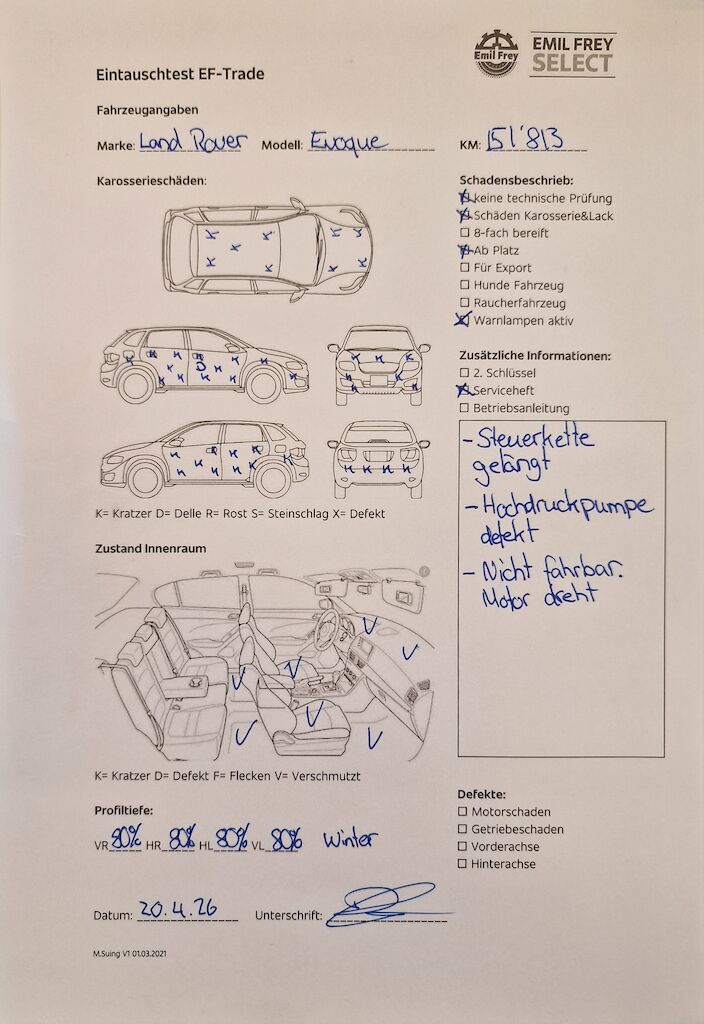 Emil Frey
EMIL FREY
SELECT
Eintauschtest EF-Trade
Fahrzeugangaben
Marke: Land Rover Modell: Evoque KM: 151'813
Karosserieschäden:
K K K K K K K K K
K K K K D K K K K K K K K K
K K K K K K K
K K K K K K K K K K K
K K K K
K= Kratzer D= Delle R= Rost S= Steinschlag X= Defekt
Zustand Innenraum
V V V V V V V
K= Kratzer D= Defekt F= Flecken V= Verschmutzt
Profiltiefe:
VR 80% HR 80% HL 80% VL 80% Winter
Datum: 20.4.26 Unterschrift:
M.Suing V1 01.03.2021
Schadensbeschrieb:
keine technische Prüfung
Schäden Karosserie&Lack
8-fach bereift
Ab Platz
Für Export
Hunde Fahrzeug
Raucherfahrzeug
Warnlampen aktiv
Zusätzliche Informationen:
2. Schlüssel
Serviceheft
Betriebsanleitung
- Steuerkette
gelängt
- Hochdruckpumpe
defekt
- Nicht fahrbar.
Motor dreht
Defekte:
Motorschaden
Getriebeschaden
Vorderachse
Hinterachse